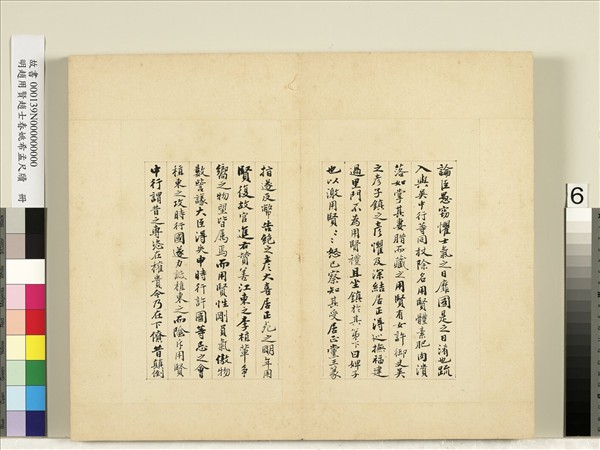 故書 000139N000000000
明趙用賢趙士春姚希孟尺牘 冊
6
論臣愚竊懼士氣之日靡國是之日淆也疏
入與吳中行等同杖除名用賢體素肥肉潰
落如掌其妻腊而藏之用賢有女許御史吳
之彥子鎮之彥懼及深結居正得巡撫福建
過里門不為用賢禮且坐鎮於其弟下曰婢子
也以激用賢〻〻怒已察知其受居正黨王篆
指遂反幣告絕之彥大喜居正死之明年用
賢復故官進右贊善江東之李植輩爭
嚮之物望皆屬焉而用賢性剛負氣傲物
數訾議大臣得失申時行許國等忌之會
植東之攻時行國遂力詆植東之而陰斥用賢
中行謂昔之專恣在權貴今乃在下僚昔顛倒